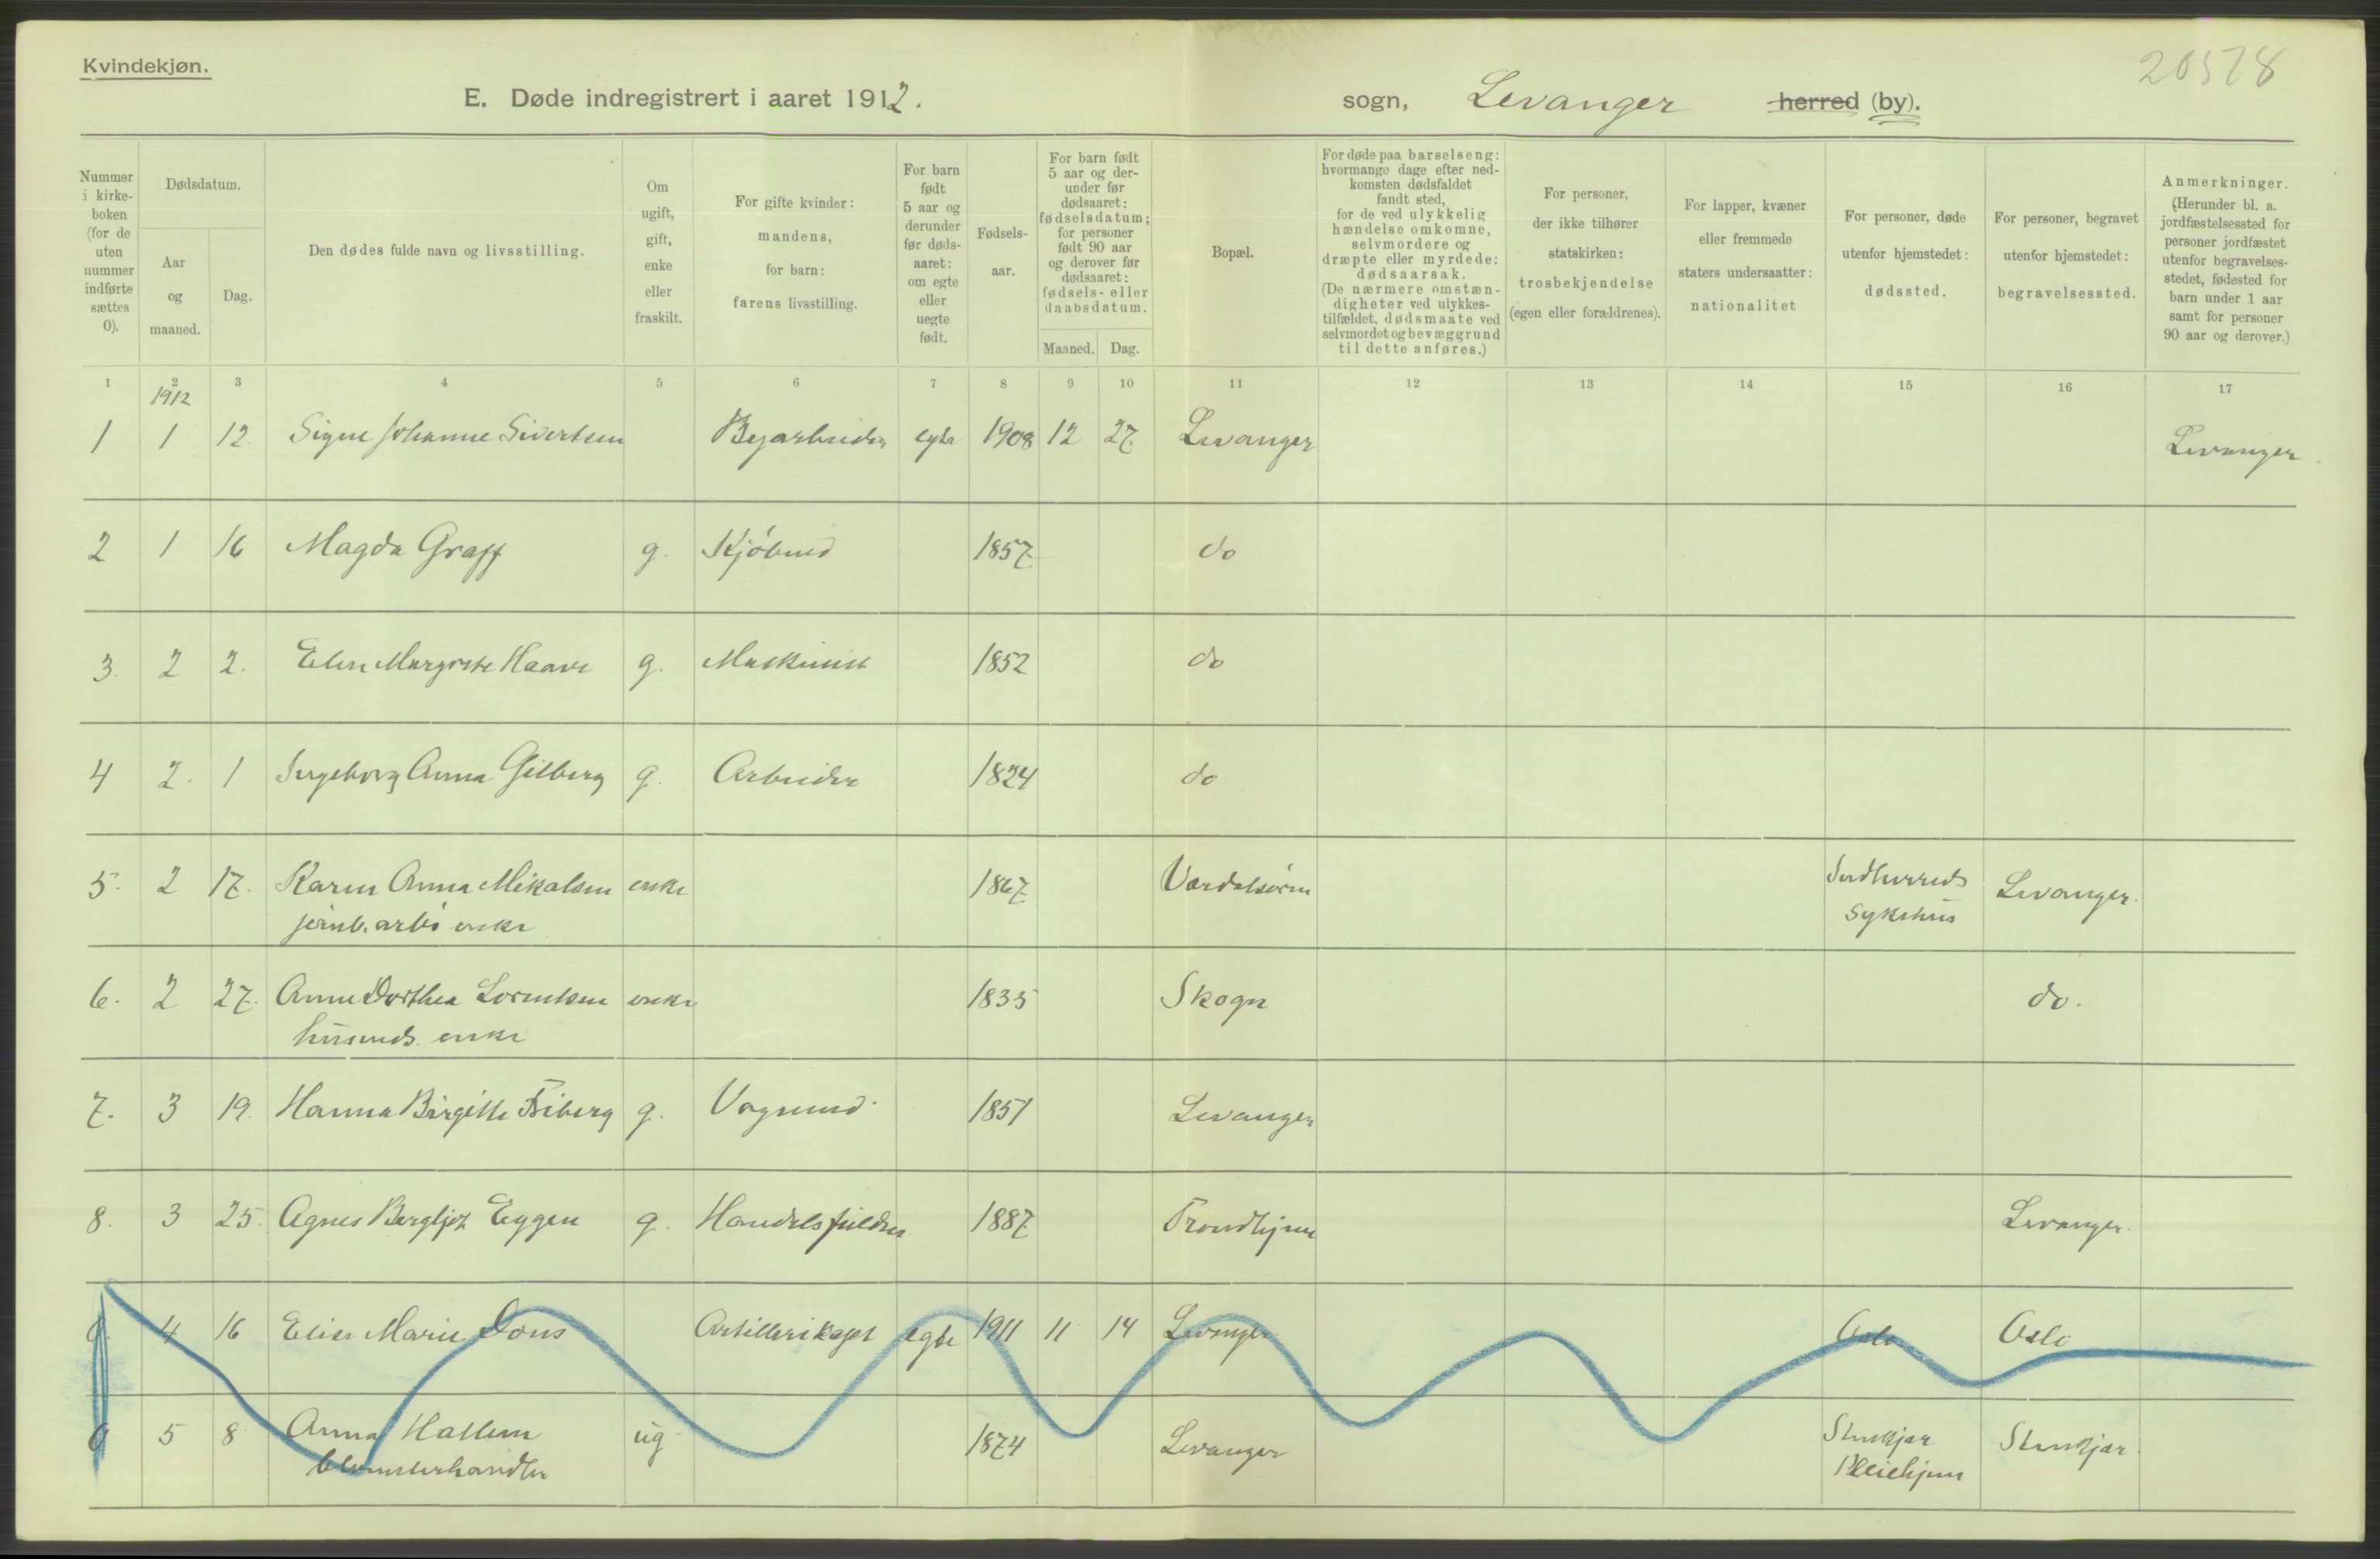 Kvindekjøn.
20578
E. Døde indregistrert i aaret 1912.
sogn, Levanger herred (by).
Nummer i kirke-boken (for de uten nummer indførte sættes 0).
Dødsdatum.
Aar og maaned.
Dag.
Den dødes fulde navn og livsstilling.
Om ugift, gift, enke eller fraskilt.
For gifte kvinder: mandens, for barn: farens livsstilling.
For barn født 5 aar og derunder før døds-aaret: om egte eller uegte født.
Fødsels-aar.
For barn født 5 aar og der-under før dødsaaret: fødselsdatum; for personer født 90 aar og derover før dødsaaret: fødsels- eller daabsdatum.
Maaned. Dag.
Bopæl.
For døde paa barselseng: hvormange dage efter ned-komsten dødsfaldet fandt sted, for de ved ulykkelig hændelse omkomne, selvmordere og dræpte eller myrdede: dødsaarsak. (De nærmere omstæn-digheter ved ulykkes-tilfældet, dødsmaate ved selvmordet og bevæggrund til dette anføres.)
For personer, der ikke tilhører statskirken: trosbekjendelse (egen eller forældrenes).
For lapper, kvæner eller fremmede staters undersaatter: nationalitet
For personer, døde utenfor hjemstedet: dødssted.
For personer, begravet utenfor hjemstedet: begravelsessted.
Anmerkninger. (Herunder bl. a. jordfæstelsessted for personer jordfæstet utenfor begravelses-stedet, fødested for barn under 1 aar samt for personer 90 aar og derover.)
1 2 3 4 5 6 7 8 9 10 11 12 13 14 15 16 17
1912
1 1 12. Signe Johanne Sivertsen Byarbeider egte 1908 12 27. Levanger Levanger
2 1 16 Magda Graff g. Kjøbmd 1857. do
3. 2 2. Elen Margrete Haave g. Maskinist 1852 do
4 2. 1 Ingeborg Anna Gilberg g. Arbeider 1824 do
5. 2 17. Karen Anna Mikalsen enke 1867. Værdalsøren Indherreds Levanger.
jernb. arb. enke sykehus
6. 2 27. Anne Dorthea Lorentsen enke 1835 Skogn do.
husmds. enke
7. 3 19. Hanna Birgitte Friberg g. Vognmd. 1851 Levanger
8. 3 25. Agnes Bergljot Eggen g. Handelsfuldm 1887. Trondhjem Levanger.
0. 4 16 Elise Marie Dons Artillerikapt egte 1911 11 14 Levanger Oslo Oslo
0 5 8 Anna Hallem ug 1874 Levanger Stenkjær Stenkjær.
blomsterhandler Pleiehjem